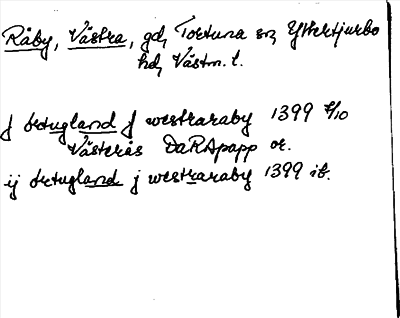 Råby, Västra, gd, Tortuna sn, Yttertjurbo
hd, Västm. l.
j ørtugland j westraraby 1399 8/10
Västerås DaRApapp or.
ij ørtugland j westraraby 1399 ib.